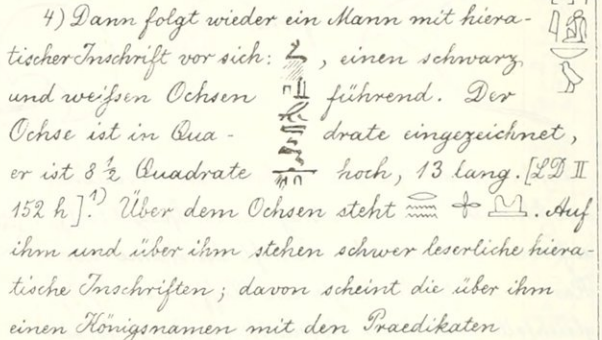 4) Dann folgt wieder ein Mann mit hiera-
tischer Inschrift vor sich: , einen schwarz
und weißen Ochsen führend. Der
Ochse ist in Qua- drate eingezeichnet,
er ist 8 1/2 Quadrate hoch, 13 lang. [LD II
152 h].¹) Über dem Ochsen steht . Auf
ihm und über ihm stehen schwer leserliche hiera-
tische Inschriften; davon scheint die über ihm
einen Königsnamen mit den Praedikaten